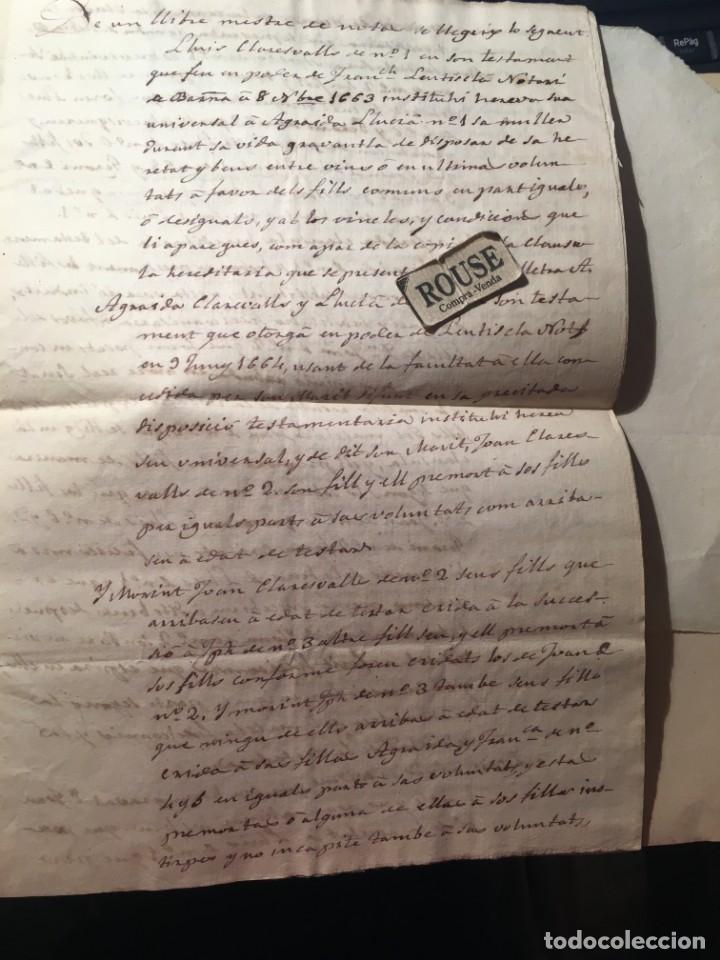 De un llibre mestre de notas se llegeix lo seguent
Lluis Claresvalls de nº 1 en son testament
que feu en poder de Franch Lentiscla Notari
de Barña á 8 Nbre 1663 instituhí hereva sua
universal á Agraida Lluciá nº 1 sa muller
durant sa vida gravantla de disposar de sa he
retat y bens entre vius ó en ultima volun
tats á favor dels fills comuns en part iguals,
ó desiguals, y ab los vincles, y condicions que
li aparegues, com apar de la copia la Clausu
la hereditaria que se present lletra A.
Agraida Claresvalls y Lluciá son testa
ment que otorgá en poder de Lentiscla Not
en 9 Juny 1664, usant de la facultat á ella con
cedida per son Marit difunt en sa precitada
disposició testamentaria instituhí hereu
seu universal, y de dit son Marit, Joan Clares
valls de nº 2. son fill y ell premort á sos fills
per iguals parts á sas voluntats com arriba
sen á edat de testar.
Y Morint Joan Claresvalls de nº 2 seus fills que
arribasen á edat de testar crida á la succes
sió á Jph de nº 3 altre fill seu, y ell premort á
sos fills conforme foren cridats los de Joan
nº 2. Y morint Jph de nº 3 tambe seus fills
que ningu de ells arribás á edat de testar
crida á sas fillas Agraida, y Franca de nº
4 y 5 en iguals parts á sas voluntats, y esta
premortas ó alguna de ellas á sos fills ins
tirpes y no in capite tambe á sas voluntats,
ROUSE
Compra-Venda
RePág
todocoleccion